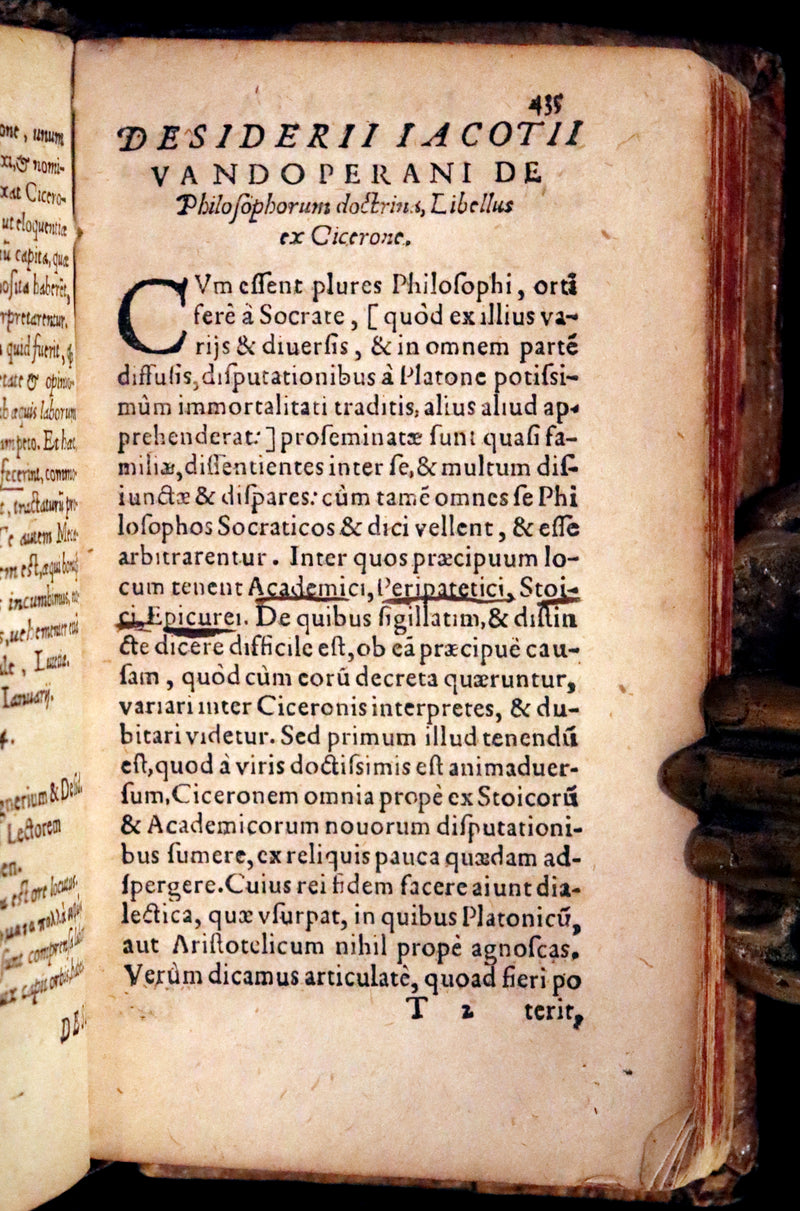 one, unum
xi, & nomi-
xat Cicero-
ut eloquentiæ
tū capita, quæ
osita haberēt,
rpretarentur,
quid fuerit, &
tate & opinio-
ab æquis laborum
impero. Et hæc
fecerint, commo-
t, tractaturū pr-
Te autem
em est, æqui boni
incumbimus,
de,
Ianuarij.
Lectorem
en.
DE
435
DESIDERII IACOTII
VANDOPERANI DE
Philoſophorum doctrina, Libellus
ex Cicerone.
CVm eſſent plures Philoſophi, orti
ferè à Socrate, [ quòd ex illius va-
rijs & diuerſis, & in omnem partē
diffuſis, diſputationibus à Platone potiſsi-
mùm immortalitati traditis, alius aliud ap-
prehenderat: ] proſeminatæ ſunt quaſi fa-
miliæ, diſſentientes inter ſe, & multum diſ-
iunctæ & diſpares: cùm tamē omnes ſe Phi
loſophos Socraticos & dici vellent, & eſſe
arbitrarentur. Inter quos præcipuum lo-
cum tenent Academici, Peripatetici, Stoi-
ci, Epicurei. De quibus ſigillatim, & diſtin
ctè dicere difficile eſt, ob eā præcipuè cau-
ſam, quòd cùm eorū decreta quæruntur,
variari inter Ciceronis interpretes, & du-
bitari videtur. Sed primum illud tenendū
eſt, quod à viris doctiſsimis eſt animaduer-
ſum, Ciceronem omnia propè ex Stoicorū
& Academicorum nouorum diſputationi-
bus ſumere, ex reliquis pauca quædam ad-
ſpergere. Cuius rei fidem facere aiunt dia-
lectica, quæ vſurpat, in quibus Platonicū,
aut Ariſtotelicum nihil propè agnoſcas.
Verùm dicamus articulatè, quoad fieri po
T 2 terit,